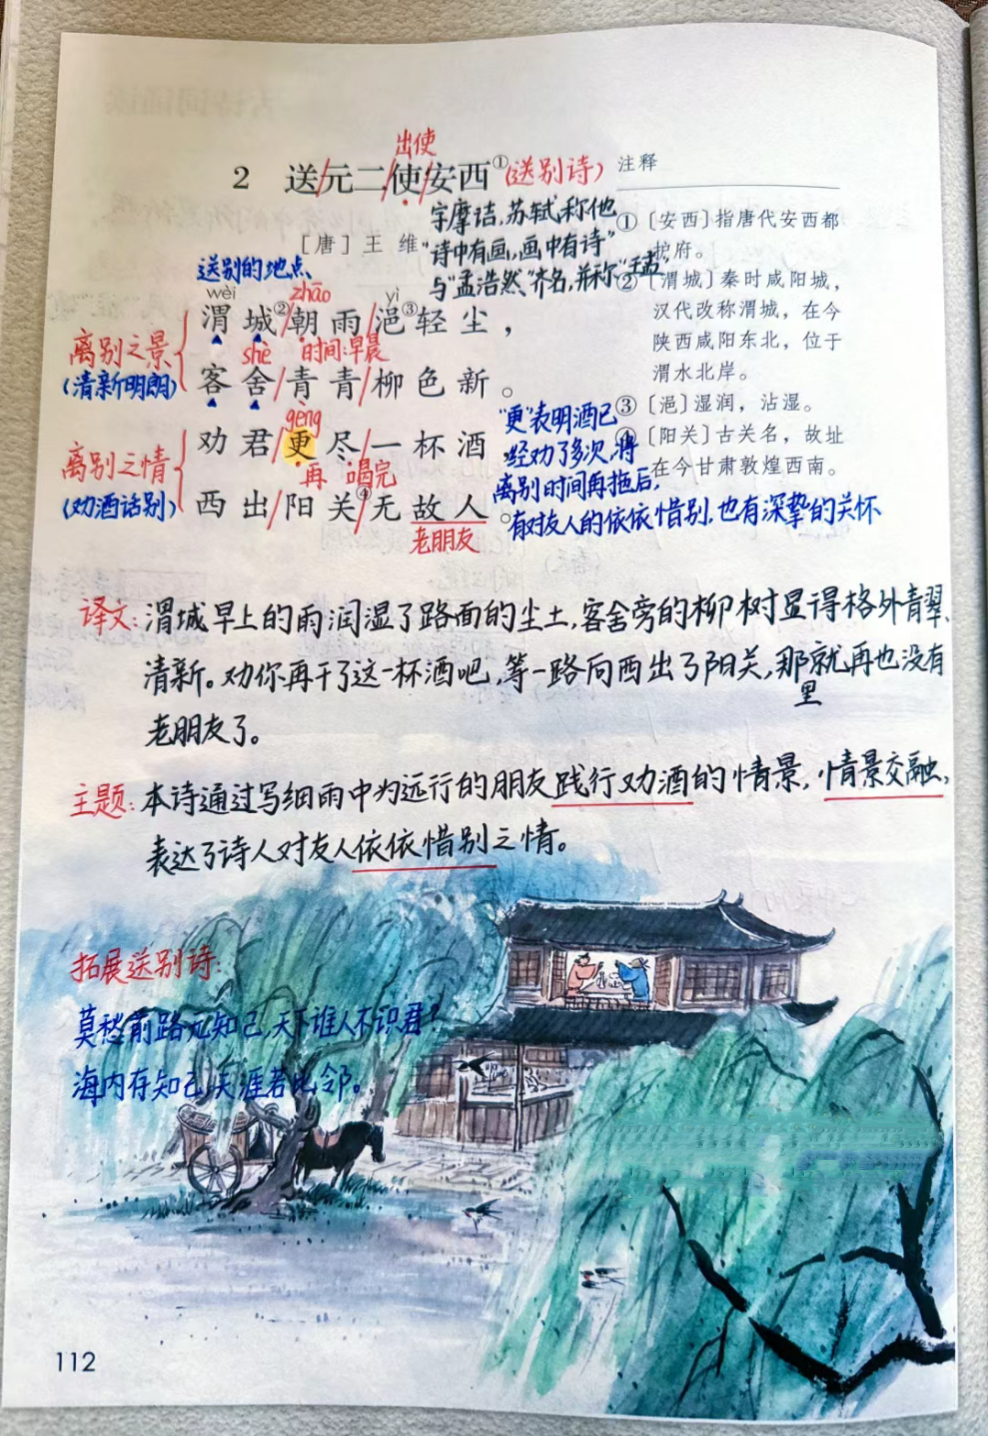 出使
2 送/元二/使/安西①(送别诗)
[唐] 王 维
字摩诘,苏轼称他
“诗中有画,画中有诗”
与“孟浩然”齐名,并称“王孟”
送别的地点
wèi zhāo yì
渭城②/朝雨/浥③轻尘,
shè 时间:早晨
客舍/青青/柳色新。
离别之景
(清新明朗)
gèng
劝君/更尽/一杯酒
再 喝完
西出/阳关④/无故人。
老朋友
离别之情
(劝酒话别)
“更”表明酒已
经劝了多次,将
离别时间再拖后,
有对友人的依依惜别,也有深挚的关怀
注释
① 〔安西〕指唐代安西都
护府。
② 〔渭城〕秦时咸阳城,
汉代改称渭城,在今
陕西咸阳东北,位于
渭水北岸。
③ 〔浥〕湿润,沾湿。
④ 〔阳关〕古关名,故址
在今甘肃敦煌西南。
译文:渭城早上的雨润湿了路面的尘土,客舍旁的柳树显得格外青翠、
清新。劝你再干了这一杯酒吧,等一路向西出了阳关,那就再也没有
里
老朋友了。
主题:本诗通过写细雨中为远行的朋友践行劝酒的情景,情景交融,
表达了诗人对友人依依惜别之情。
拓展送别诗:
莫愁前路无知己,天下谁人不识君?
海内存知己,天涯若比邻。
112